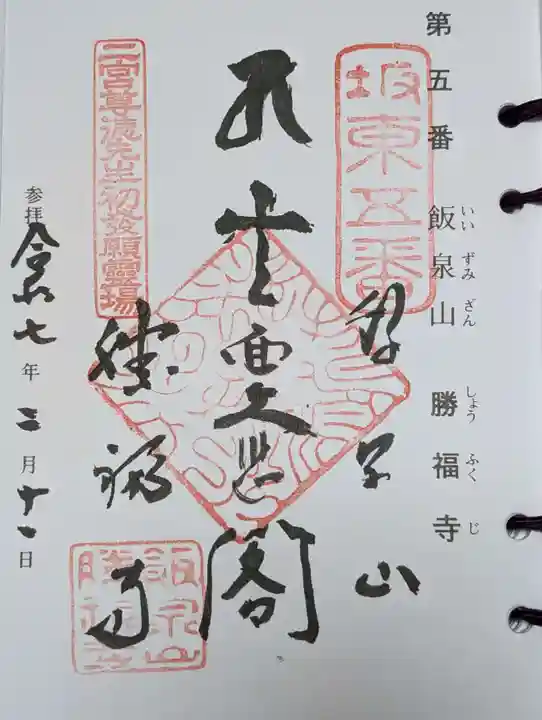 第五番 飯泉山 勝福寺
いい ずみ ざん しょう ふく じ
坂東五番
飯泉山
十一面大悲閣
勝福寺
二宮尊徳先生初發願靈場
参拝 令和七年 三月十一日
飯泉山
勝福寺